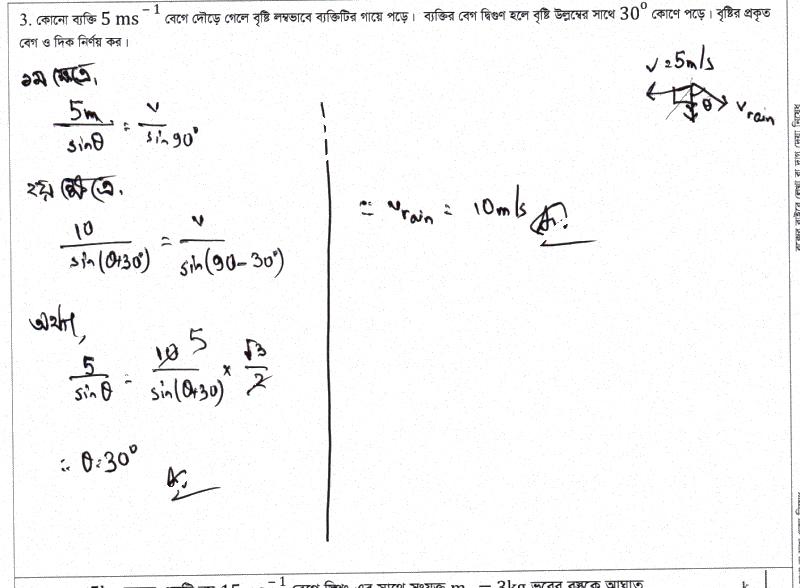 3. কোনো ব্যক্তি 5 ms⁻¹ বেগে দৌড়ে গেলে বৃষ্টি লম্বভাবে ব্যক্তিটির গায়ে পড়ে। ব্যক্তির বেগ দ্বিগুণ হলে বৃষ্টি উল্লম্বের সাথে 30⁰ কোণে পড়ে। বৃষ্টির প্রকৃত
বেগ ও দিক নির্ণয় কর।
v = 5m/s
θ v_rain
১ম ক্ষেত্রে,
5m/sinθ = v/sin90°
২য় ক্ষেত্রে,
10/sin(θ+30°) = v/sin(90-30°)
অর্থাৎ,
5/sinθ = 10 5/sin(θ+30) × √3/2
∴ θ=30°
∴ v_rain = 10m/s